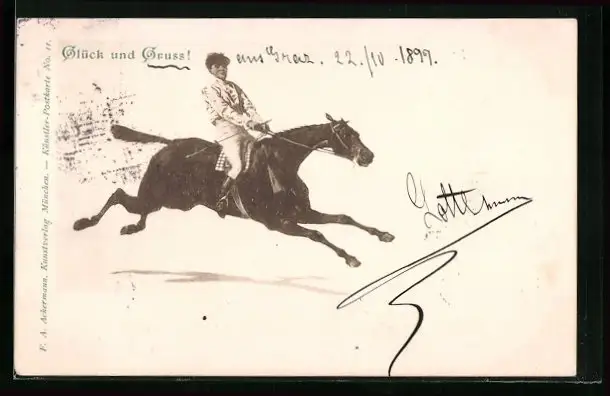 Glück und Gruss! aus Graz. 22./10.1899.
F. A. Ackermann, Kunstverlag München. — Künstler-Postkarte No. 11.